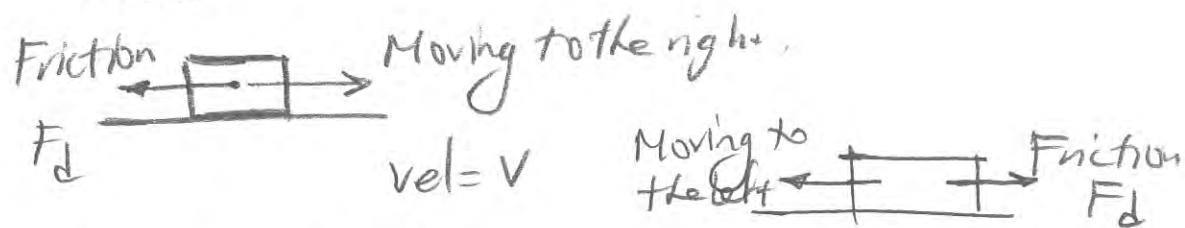 Friction
Moving to the right.
Fd
vel = V
Moving to
the left
Friction
Fd